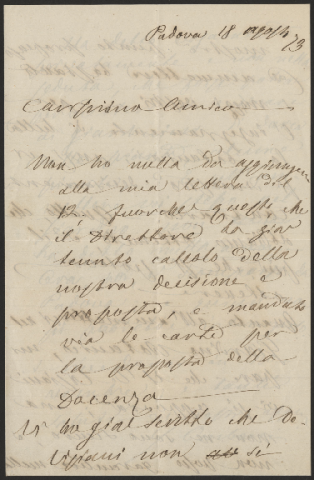 Padova 18 agosto
73
Carissimo Amico
Non ho nulla da aggiungere
alla mia lettera del
12. fuorchè questo, che
il Direttore ha già
tenuto calcolo della
nostra decisione e
proposta, e mandato
via le carte per
la proposta della
Docenza
Vi ho già scritto che De-
Visiani non si